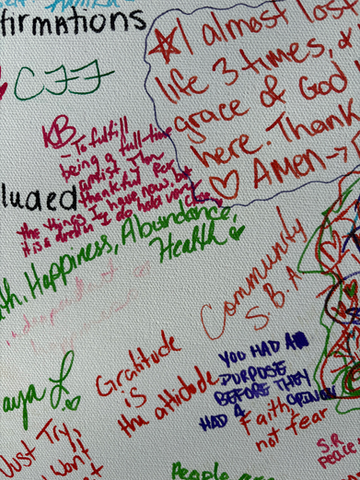 firmations
CFF
I almost lost
life 3 times, &
grace of God
here. Thank
AMEN→
KB
- To fulfill
being a full-time
artist I'm
thankful for
the things I have now but
it is a dream I do hold very
luded
th, Happiness, Abundance,
Health
independent
happiness
Community
S.B.A
aya L.
Gratitude
is
the attidude
YOU HAD A
PURPOSE
BEFORE THEY
HAD A OPINION
Faith,
not fear
Just Try,
want
S.R.
Peace
People are